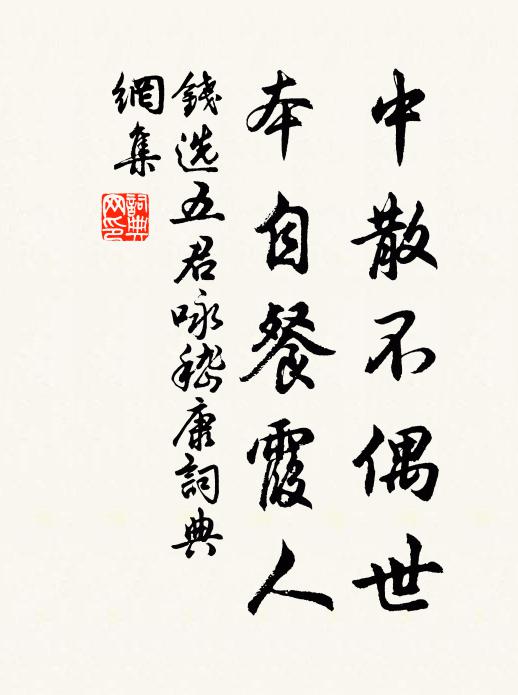 中散不偶世
本自餐霞人
錢选五君咏嵇康詞典
網集
詞典
网印